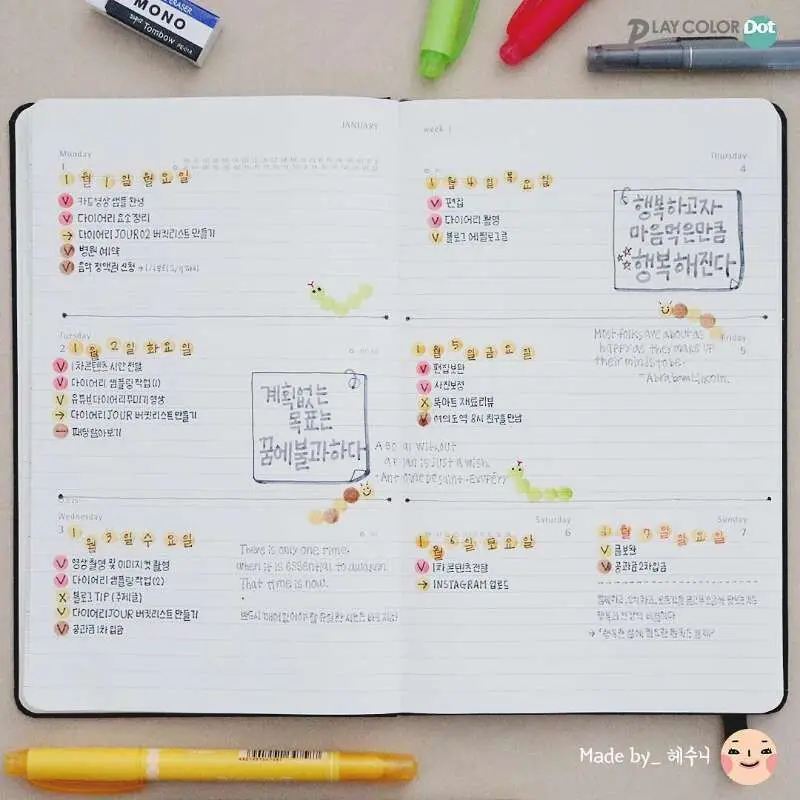 MONO
Tombow PE-01A
PLAY COLOR Dot
JANUARY
Monday
1
1월 1일 월요일
V 카드뉴스 샘플 완성
V 다이어리 요소 정리
→ 다이어리 JOUR 02 버킷리스트 만들기
V 병원 예약
V 음악 정액권 신청
Tuesday
2
1월 2일 화요일
V 1차 콘텐츠 시안 전달
V 다이어리 샘플링 작업 (1)
V 유튜브 다이어리 꾸미기 영상
→ 다이어리 JOUR 버킷리스트 만들기
계획없는
목표는
꿈에 불과하다
A Goal without
a plan is just a wish.
- Antoine De Saint-Exupéry
Wednesday
3
1월 3일 수요일
V 영상 촬영 및 이미지컷 촬영
V 다이어리 샘플링 작업 (2)
X 블로그 TIP (주제글)
V 다이어리 JOUR 버킷리스트 만들기
V 공과금 1차 입금
There is only one time,
when it is essential to awaken.
That time is now.
week 1
Thursday
4
1월 4일 목요일
V 편집
V 다이어리 촬영
V 블로그 에필로그
행복하고자
마음먹은만큼
행복해진다
Friday
5
1월 5일 금요일
V 편집보완
V 사진보정
X 북아트 재료 리뷰
여의도역 8시 친구들 만남
Most folks are about as
happy as they make up
their minds to be.
- Abraham Lincoln.
Saturday
6
1월 6일 토요일
V 1차 콘텐츠 전달
→ INSTAGRAM 업로드
Sunday
7
1월 7일 일요일
V 글보완
V 공과금 2차 입금
Made by_ 혜수니